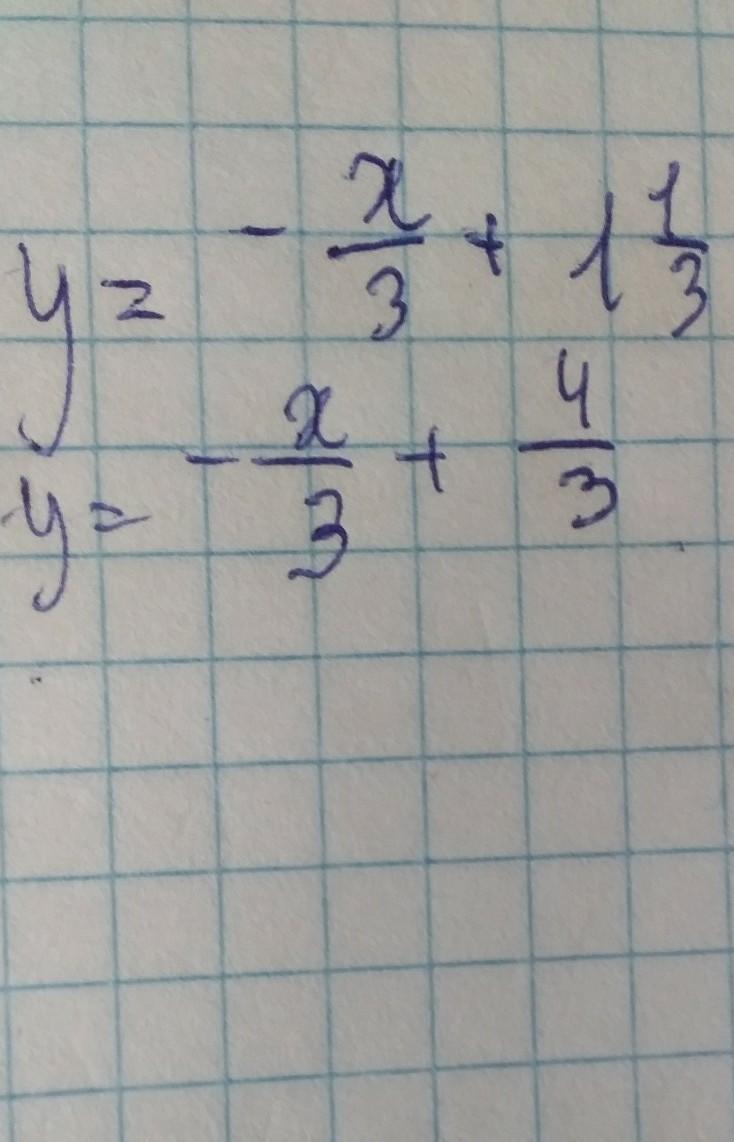 y = -x/3 + 1 1/3
y = -x/3 + 4/3